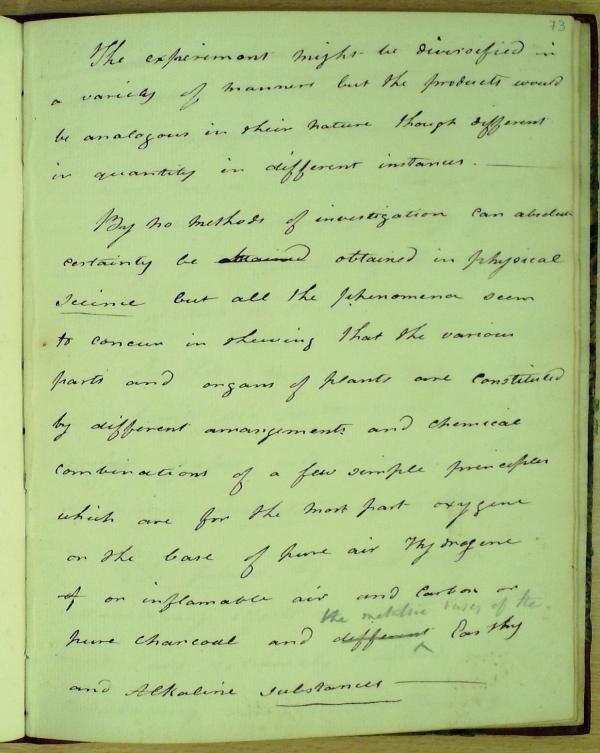 73
The experiment might be diversified in
a variety of manners but the products would
be analogous in their nature though different
in quantity in different instances.
By no methods of investigation can absolute
certainty be attained obtained in physical
science but all the phenomena seem
to concur in shewing that the various
parts and organs of plants are constituted
by different arrangements and chemical
combinations of a few simple principles
which are for the most part oxygene
or the base of pure air Hydrogene
or inflamable air and Carbon or
the metallic bases of the
pure charcoal and different Earthy
and Alkaline substances